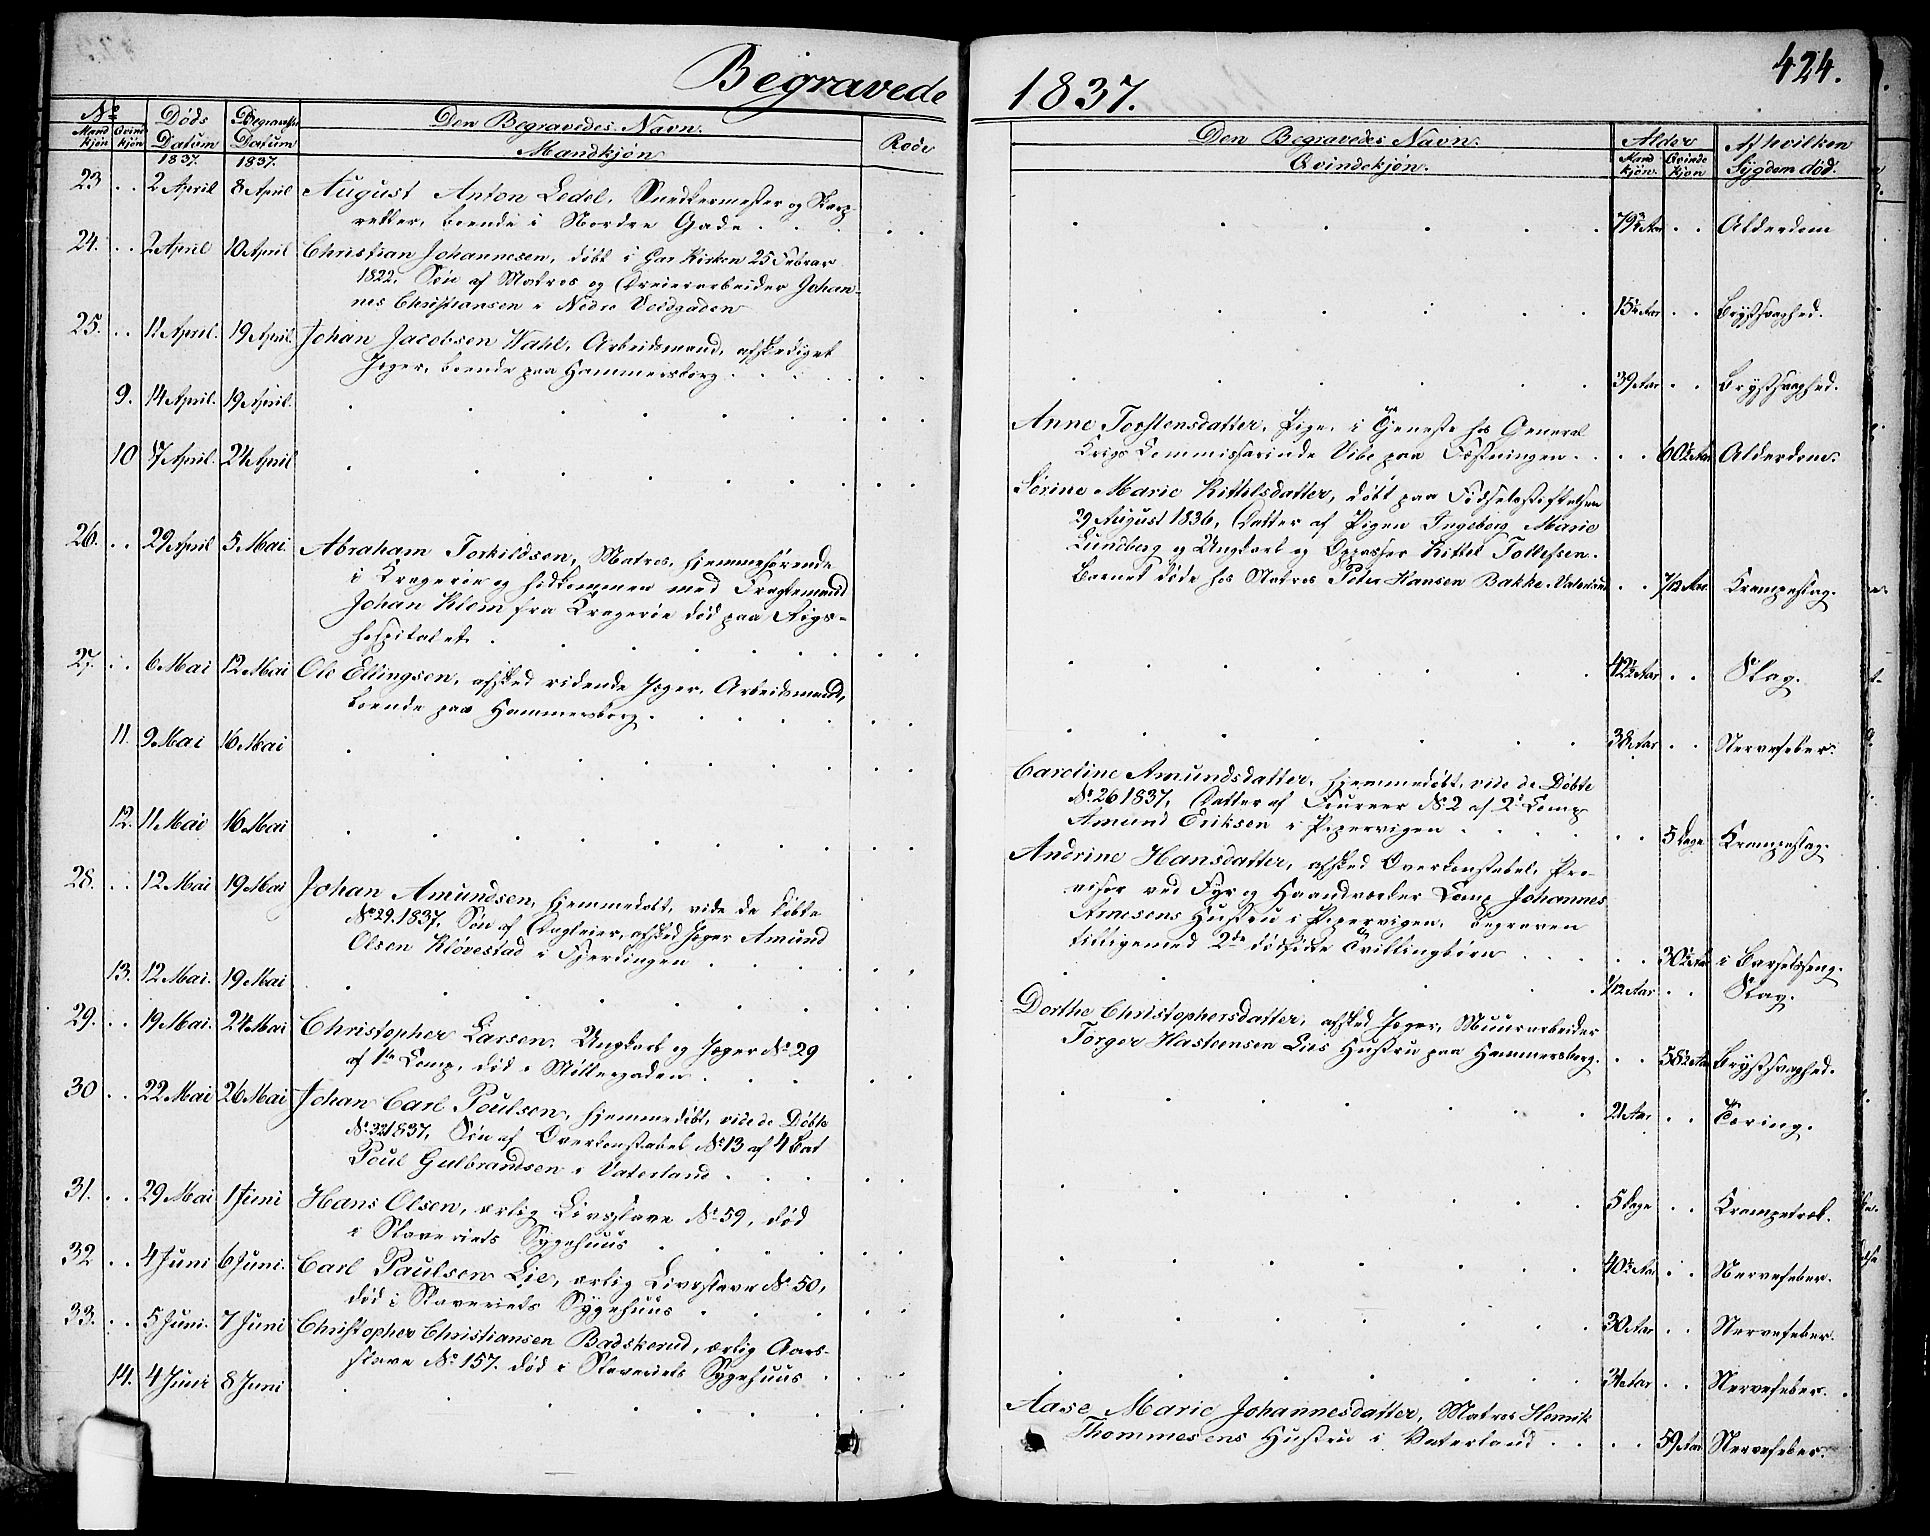 Begravede
1837.
424.
No
Mandkjøn
Qvindkjøn
Døds Datum 1837.
Begravelse Datum 1837.
Den Begravedes Navn.
Mandkjøn
Rode
Den Begravedes Navn.
Qvindekjøn.
Alder
Mandkjøn.
Qvindekjøn
Af hvilken
Sygdom død.
23 . . 2 April 8 April August Anton Ledel, Snedkermester og
boende i Nordre Gade . . 79½ Aar . . Alderdom
24. . . 2 April 10 April Christian Johannesen, døbt i Gar Kirken 25 Februar
1822, Søn af Matros og Dreierarbeider Johan-
nes Christiansen i Nedre Voldgaden 15½ Aar . . Brystsvaghed.
25. . . 11 April. 19 April. Johan Jacobsen Wahl, Arbeidsmand, afskediget
Jæger, boende paa Hammersborg . . 39 Aar . . Brystsvaghed.
9. 14 April. 19 April. Anne Torstensdatter, Pige i Tjeneste hos General
Krigs Commissairinde Vibe paa Fæstningen . . . 60½ Aar Alderdom.
10 17 April. 24 April Sørine Marie Kittilsdatter, døbt paa Fødselsstiftelsen
29 August 1836, Datter af Pigen Ingeborg Marie
Lundberg og Ungkarl og Oppasser Kittel Tollefsen.
Barnet døde hos Matros Peter Hansen Bakke i Vaterland . . 7/12 Aar. Krampeslag.
26. . . 29 April 5 Mai. Abraham Torkildsen, Matros, hjemmehørende
i Kragerøe og hidkommen med Fragtemand
Johan Klem fra Kragerøe død paa Rigs-
hospitalet . 42½ Aar . . Slag.
27. . . 6 Mai 12 Mai Ole Ellingsen, afsked ridende Jæger, Arbeidsmand,
boende paa Hammersborg . 38 Aar . . Nervefeber.
11. 9 Mai 16 Mai Caroline Amundsdatter, hjemmedøbt, vide de Døbte
No 26 1837, Datter af No 2 af 2 Comp
Amund Eriksen i Pipervigen . . . 5 Dage Krampeslag.
12. 11 Mai 16 Mai Andrine Hansdatter, afsked Overkonstabel, Pro-
visor ved Fyr og Haandværker Comp Johannes
Arnesens Hustru i Pipervigen, begraven
tilligemed 2de dødfødte Tvillingbørn . . . 30½ Aar i Barselseng.
28. . . 12 Mai 19 Mai Johan Amundsen, hjemmedøbt, vide de døbte
No 29. 1837, Søn af Dagleier, afsked Jæger Amund
Olsen Kløvestad i Fjerdingen . . 1/12 Aar . . Slag.
13. 12 Mai. 19 Mai Dorthe Christophersdatter, afsked Jæger, Muurarbeider
Torger Hastensen Lies Hustru paa Hammersborg. . . 58½ Aar Brystsvaghed.
29. . . 19 Mai. 24 Mai Christopher Larsen, Ungkarl og Jæger No 29
af 1te Comp. død i Møllergaden . . 21 Aar . . Tæring.
30 . . 22 Mai 26 Mai Johan Carl Poulsen, hjemmedøbt, vide de Døbte
No 32 1837, Søn af Overkonstabel No 13 af 4 Bat
Poul Gulbrandsen i Vaterland . . 5 Dage . . Krampetræk.
31. . . 29 Mai 1 Juni Hans Olsen, ærlig Livsslave No 59, død
i Slaveriets Sygehuus . . 40½ Aar . . Nervefeber.
32 . . 4 Juni 6 Juni. Carl Paulsen Lie, ærlig Livsslave No 50,
død i Slaveriets Sygehuus . . 30 Aar . . Nervefeber.
33. . . 5 Juni. 7 Juni Christopher Christiansen Badskerud, ærlig Aars-
slave No 157. død i Slaveriets Sygehuus . . 34 Aar . . Nervefeber.
14. 4 Juni 8 Juni Aase Marie Johannesdatter, Matros Henrik
Thommesens Hustru i Vaterland . . . 59 Aar Nervefeber.